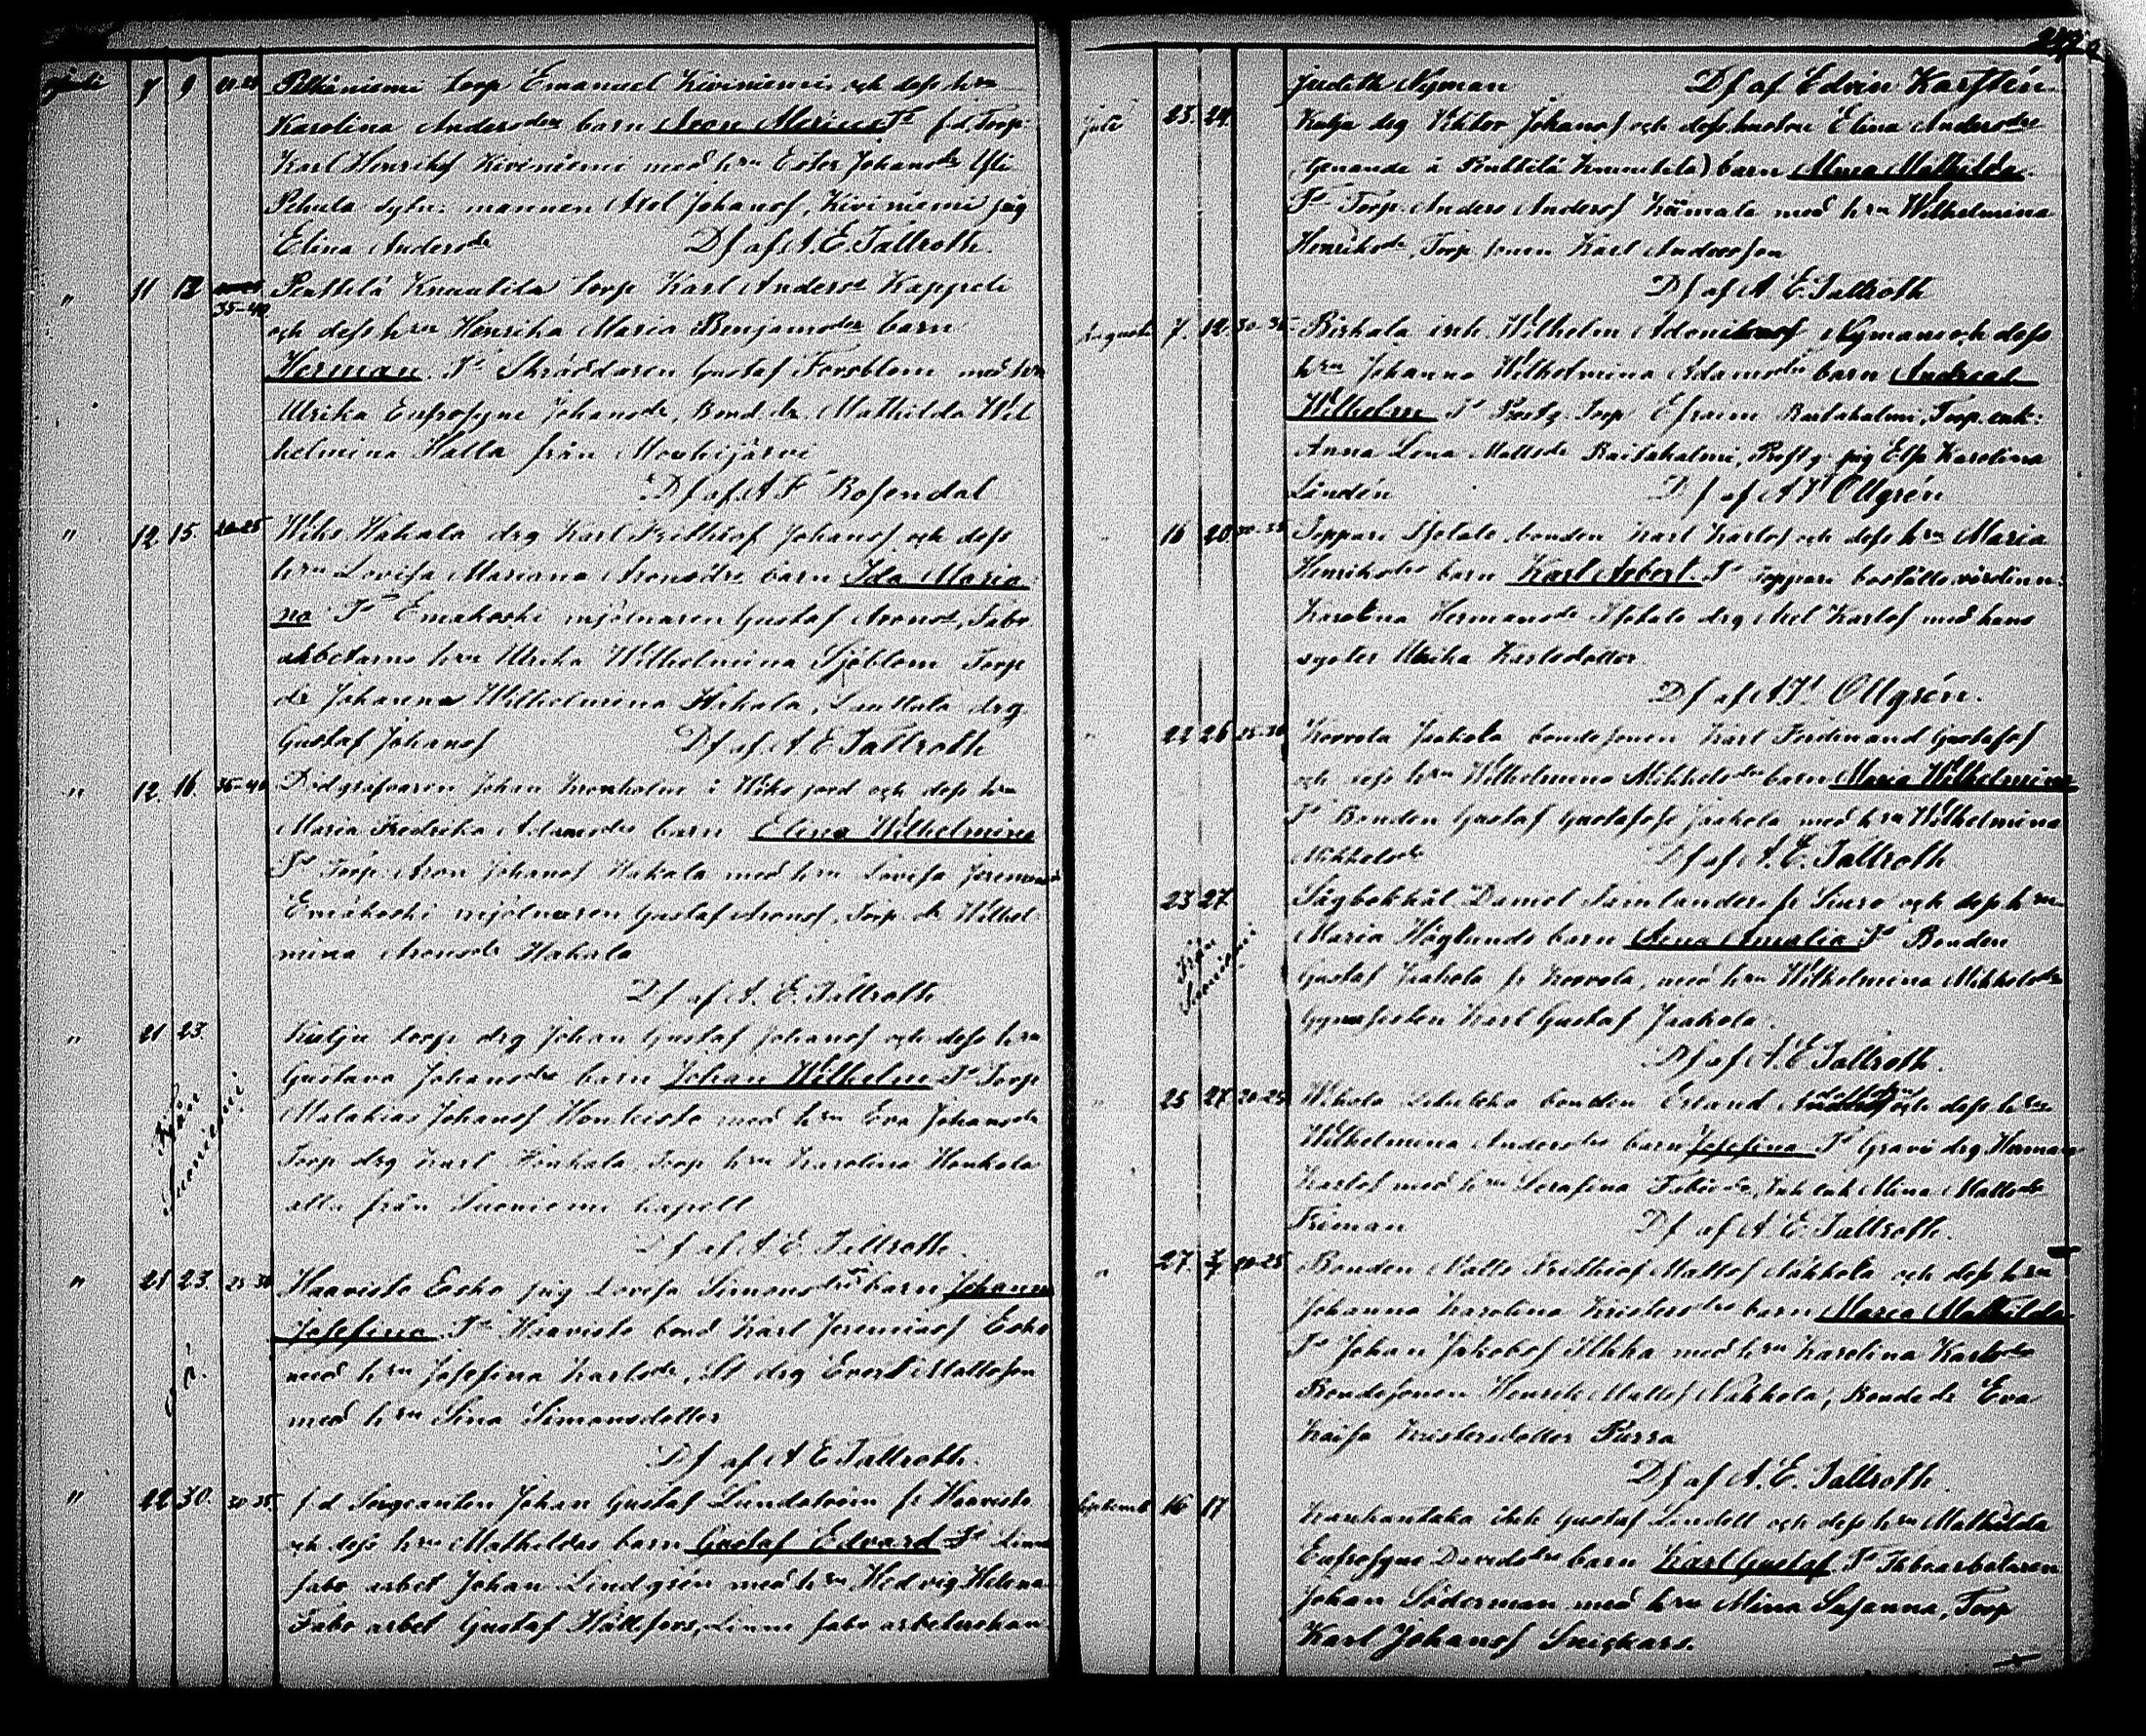 Juli 7 9 Pitkäniemi torp Emanuel Kiviniemi och dess hru
Karolina Andersdrs barn Aron Merius Ts f.d. Torp.
Karl Henriks Kiviniemi med hru Ester Johansdr
Pehula sytn: mannen Axel Johans, Kiviniemi pig
Elina Andersdr Df af A. E. Tallroth.
" 11 12 35-40 Penttilä Knuutila torp Karl Anders Kappeli
och dess hru Henrika Maria Benjamsdrs barn
Herman. Ts Skräddaren Gustaf Forsblom med hru
Ulrika Eufrosyne Johansdr, Bond dr. Mathilda Wil
helmina Halla från Mouhijärvi
Df af A F Rosendal
" 12 15. 20-25 Wiks Hakala drg Karl Frithiof Johans och dess
hru Lovisa Mariana Aronsdrs barn Ida Maria
na Ts Emakoski mjölnaren Gustaf Arons, Fabr
arbetarns hru Ulrika Wilhelmina Sjöblom Torp
dr Johanna Wilhelmina Hakala, Lauttala drg
Gustaf Johans Df af A E Tallroth
" 12. 16. 35-40 Dödgräfvaren Johan Kronholm i Wiks jord och dess hru
Maria Fredrika Adamsdrs barn Elina Wilhelmina
Ts Torp. Aron Johans Hakala med hru Lovisa
Emäkoski mjölnaren Gustaf Arons, Torp. dr Wilhel
mina Aronsdr Hakala
Df af A. E. Tallroth
" 21 23. Kulju torp drg Johan Gustaf Johans och dess hru
Gustava Johansdrs barn Johan Wilhelm Ts Torp
Malakias Johans Honkisto med hru Eva Johansdr
Torp drg Karl Honkala, Torp hru Karolina Honkala
alla från Suoniemi kapell
Från Suoniemi
Df af A E Tallroth.
" 21 23. 25-30 Haavisto Esko pig Lovisa Simonsdrs barn Johanna
Josefina Ts Haavisto bond Karl Jeremias Esko
med hru Josefina Karlsdr, drg Evert Mattsson
med hru Sina Simonsdotter
o ä.
Df af A E Tallroth.
" 22 30. 30-35. f d Sergeanten Johan Gustaf Lundström fr Haavisto
och dess hru Mathildas barn Gustaf Edvard Ts Linne
fabr arbet Johan Lindgrén med hru Hedvig Helena
Fabr arbet Gustaf Hällfors, Linne fabr arbeterskan
Judith Nyman Df af Edvin Karstén.
Juli 23. 24. Kulju drg Viktor Johans och dess hustru Elina Andersdrs
(Genande å Penttilä Knuutila) barn Alma Mathilda.
Ts Torp. Anders Anders Kämala med hru Wilhelmina
Henriksdr, Torp sonen Karl Andersson
Df af A. E. Tallroth
Augusti 7. 12. 30-35 Birkala inh. Wilhelm Nyman och dess
hru Johanna Wilhelmina Adamsdrs barn Andreas
Wilhelm Ts Torp Efraim Raitahalmi, Torp. enk:
Anna Lena Mattsdr Raitahalmi, pig Els Karolina
Lindén Df af A W Ollgrén
16 20 30-35 Toppari Isotalo bonden Karl Karls och dess hru Maria
Henriksdrs barn Karl Arbert Ts Toppari boställs värdinn.
Karolina Hermansdr Isotalo drg Axel Karls med hans
syster Ulrika Karlsdotter.
Df af A W Ollgrén.
22 26 25-30 Korvola Jaakola bondesonen Karl Ferdinand Gustafss
och dess hru Wilhelmina Mikkelsdrs barn Maria Wilhelmina
Ts Bonden Gustaf Gustafss Jaakola med hru Wilhelmina
Mikkelsdr Df af A. E. Tallroth
23 27. Sågbokhål Daniel fr Siuro och dess hru
Maria Höglunds barn Aina Amalia Ts Bonden
Gustaf Jaakola fr Korvola, med hru Wilhelmina Mikkelsdr
Gymnasisten Karl Gustaf Jaakola.
Från Suoniemi
Df af A. E Tallroth.
" 25 27 20-25 bonden Erland och dess hru
Wilhelmina Andersdrs barn Josefina Ts Gravi drg Herman
Karls med hru Serafina, Inh enk Mina Mattsdr
Friman Df af A. E. Tallroth.
" 27. 20-25 Bonden Matts Frithiof Matts Nokkola och dess hru
Johanna Karolina Kristersdrs barn Maria Mathilda
Ts Johan Jakobs Ilkka med hru Karolina Karlsdr
Bondesonen Henrik Matts Nokkola, Bonde dr Eva
Kaisa Kristersdotter Purra
Df af A. E. Tallroth.
Septemb 16 17 Kauhantaka inh Gustaf Lindell och dess hru Mathilda
Eufrosyne Davidsdrs barn Karl Gustaf. Ts Fbrarbetaren
Johan Söderman med hru Mina Susanna, Torp
Karl Johans Snickars.